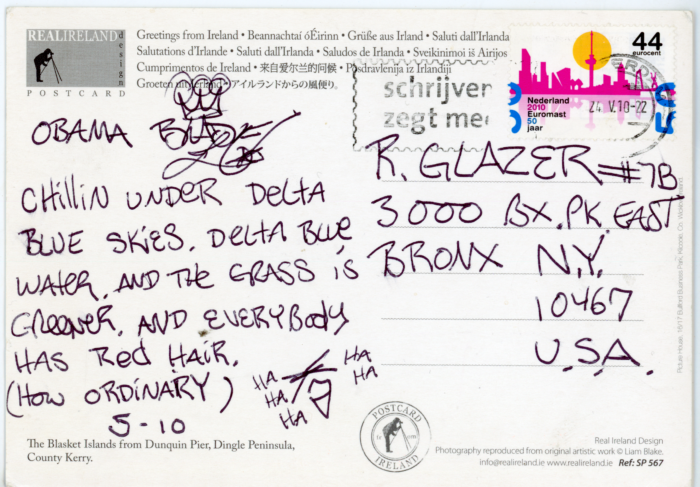 REALIRELAND
design
POSTCARD
Greetings from Ireland • Beannachtaí óÉirinn • Grüße aus Irland • Saluti dall'Irlanda
Salutations d'Irlande • Saluti dall'Irlanda • Saludos de Irlanda • Sveikinimoi iš Airijos
Cumprimentos de Ireland • 来自爱尔兰的问候 • Pozdravlenija iz Irlandii
Groeten uit Ierland • アイルランドからの風便り。
44
eurocent
Nederland
2010
Euromast
50
jaar
schrijver
zegt me
24.V.10-22
OBAMA
CHILLIN UNDER DELTA
BLUE SKIES. DELTA BLUE
WATER, AND THE GRASS IS
GREENER, AND EVERYBODY
HAS RED HAIR.
(HOW ORDINARY)
5-10
HA
HA
HA
HA
HA
R. GLAZER #7B
3000 BX. PK. EAST
BRONX N.Y.
10467
U.S.A.
The Blasket Islands from Dunquin Pier, Dingle Peninsula,
County Kerry.
POSTCARD
IRELAND
Real Ireland Design
Photography reproduced from original artistic work © Liam Blake.
info@realireland.ie www.realireland.ie Ref: SP 567